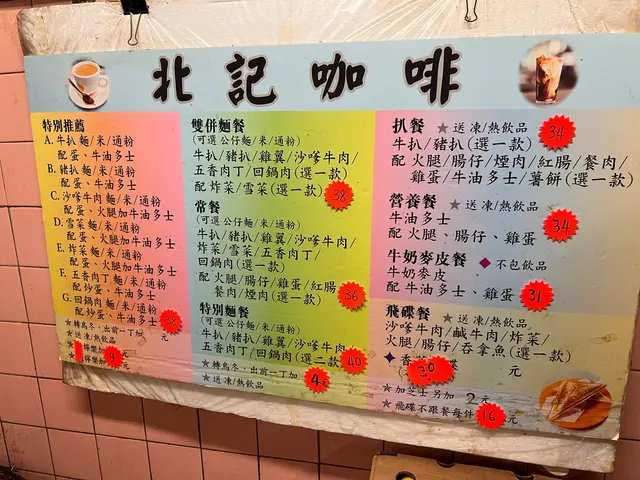 北記咖啡
特別推薦
A. 牛扒麵/米/通粉
配蛋、牛油多士
B. 豬扒麵/米/通粉
配蛋、牛油多士
C. 沙嗲牛肉麵/米/通粉
配蛋、火腿加牛油多士
D. 雪菜麵/米/通粉
配蛋、火腿加牛油多士
E. 炸菜麵/米/通粉
配蛋、火腿加牛油多士
F. 五香肉丁麵/米/通粉
配炒蛋、牛油多士
G. 回鍋肉麵/米/通粉
配炒蛋、牛油多士
38
★轉烏冬、出前一丁加 元
★送凍/熱飲品
4
雙併麵餐
(可選公仔麵/米/通粉)
牛扒/豬扒/雞翼/沙嗲牛肉/
五香肉丁/回鍋肉(選二款)
配炸菜/雪菜(選一款)
38
常餐
(可選公仔麵/米/通粉)
牛扒/豬扒/雞翼/沙嗲牛肉/
炸菜/雪菜/五香肉丁/
回鍋肉(選一款)
配火腿/腸仔/雞蛋/紅腸
餐肉/煙肉(選一款)
36
特別麵餐
(可選公仔麵/米/通粉)
牛扒/豬扒/雞翼/沙嗲牛肉
五香肉丁/回鍋肉(選二款)
40
★轉烏冬、出前一丁加 4元
★送凍/熱飲品
扒餐 ★送凍/熱飲品
34
牛扒/豬扒(選一款)
配火腿/腸仔/煙肉/紅腸/餐肉/
雞蛋/牛油多士/薯餅(選一款)
營養餐 ★送凍/熱飲品
牛油多士
配火腿、腸仔、雞蛋
34
牛奶麥皮餐 ◆不包飲品
牛奶麥皮
配牛油多士、雞蛋
31
飛碟餐 ★送凍/熱飲品
沙嗲牛肉/鹹牛肉/炸菜/
火腿/腸仔/吞拿魚(選一款)
30 元
★加芝士另加 2元
★飛碟不跟餐每件 16元